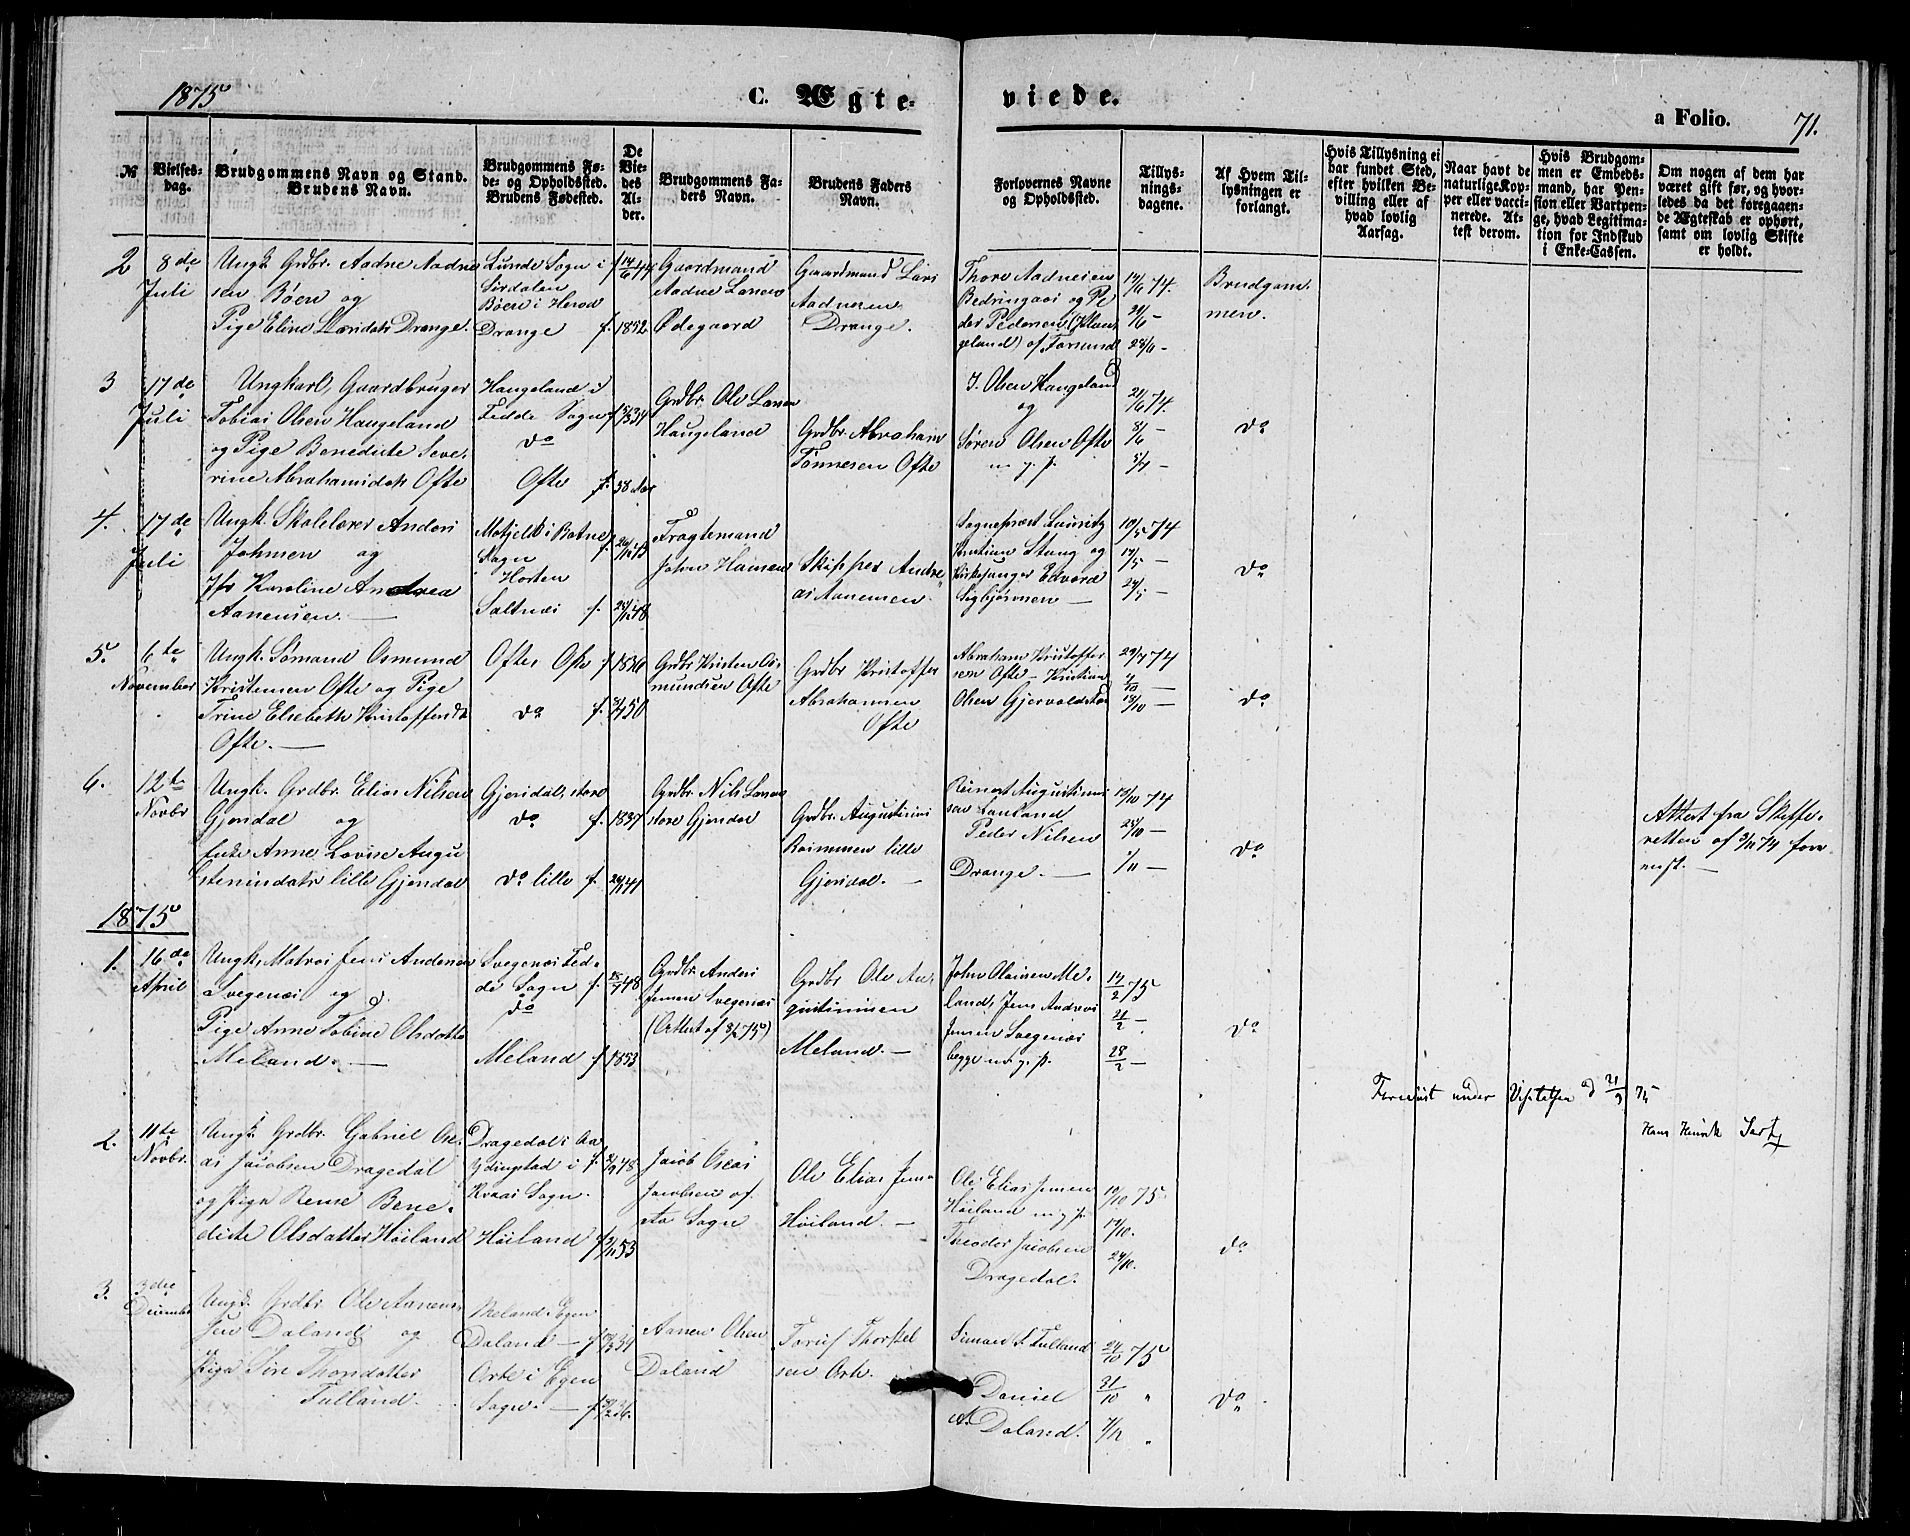 1875
C. Ægte-
viede.
a Folio. 71.
№
Vielses-
dag.
Brudgommens Navn og Stand.
Brudens Navn.
Brudgommens Fø-
de- og Opholdssted.
Brudens Fødested.
De
Vie-
des
Al-
der.
Brudgommens Fa-
ders Navn.
Brudens Faders
Navn.
Forlovernes Navne
og Opholdssted.
Tillys-
nings-
dagene.
Af Hvem Til-
lysningen er
forlangt.
Hvis Tillysning ei
har fundet Sted,
efter hvilken Be-
villing eller af
hvad lovlig
Aarsag.
Naar havt de
naturlige Kop-
per eller vacci-
nerede. At-
test derom.
Hvis Brudgom-
men er Embeds-
mand, har Pen-
sion eller Vartpen-
ge, hvad Legitima-
tion for Indskud
i Enke-Cassen.
Om nogen af dem har
været gift før, og hvor-
ledes da det foregaaen-
de Ægteskab er ophørt,
samt om lovlig Skifte
er holdt.
2
8de
Juli
Ungk. Grdbr. Aadne Aadne
sen Bøen og
Pige Eline Larsdatr Drange.
Lunde Sogn i
Sirdalen
Bøen i Herad
Drange f. 1852
Gaardmand
Aadne Larsen
Ødegaard
Gaardmand Lars
Aadnesen
Drange.
Thore Aadnesen
og Pe
der Pedersen
geland) af Farsund
14/6 74.
21/6 —
28/6 —
Brudgom
men.
3
17de
Juli
Ungkarl, Gaardbruger
Tobias Olsen Haugeland
og Pige Benedicte Seve-
rine Abrahamsdatr Ofte
Haugeland i
Fedde Sogn
do
Ofte f. 38 Aar
Grdbr. Ole Larsen
Haugeland
Grdbr. Abraham
Tønnesen Ofte
J. Olsen Haugeland
og
Søren Olsen Ofte
m. g. p.
21/6 74.
do
4.
17de
Juli
Ungk. Skolelærer Anders
Johnsen og
Jfr Karoline Andrea
Aanensen. —
i Botne
Sogn
Horten
Saltnes f. 48
Fragtemand
John Hansen
Skipper Andre-
as Aanensen.
Sognepræst Lauritz
Kristian Stang og
Kirkesanger Edvard
Sigbjørnsen —
10/5 74
17/5 —
24/5 —
do
5.
6te
November
Ungk. Sømand Osmund
Kristensen Ofte og Pige
Trine Elisebeth Kristoffersdtr
Ofte. —
Ofte, Ofte f. 1836
do f. 50
Grdbr Kristen Os-
mundsen Ofte
Grdbr Kristoffer
Abrahamsen
Ofte
Abraham Kristoffer
sen Ofte — Kristian
Olsen Gjervoldstad
74
4/10 —
18/10 —
do
6.
12te
Novbr
Ungk. Grdbr. Elias Nilsen
Gjerdal og
Enke Anne Lovise Augu
stinusdatr lille Gjerdal
Gjerdal, store
do f. 1837
do lille f. 41
Grdbr. Nils Larsen
store Gjerdal
Grdbr. Augustinus
lille
Gjerdal. —
Reinert Augustinus
sen
Peder Nilsen
Drange. —
18/10 74
25/10 —
1/11 —
do
Attest fra Skifte-
retten af 3/11 74 fore-
vist. —
1875
1.
16de
April
Ungk. Matros Jens Andersen
Svegenæs og
Pige Anne Tobine Olsdatter
Meland. —
Svegenæs Fed-
de Sogn f. 48
do
Meland f. 1853
Grdbr. Anders
Jensen Svegenæs
(Attest af 8/2 75)
Grdbr Ole Au-
gustinusen
Meland. —
John Olaisen Me-
land, Jens Andreas
Jensen Svegenæs
begge m. g. p.
14/2 75
21/2 —
28/2 —
do
Forevist under Visitatsen d 21/9 75
Hans Henrik
2.
11te
Novbr.
Ungk. Grdbr. Gabriel Ose-
as Jacobsen Dragedal
og Pige Rense Bene-
dicte Olsdatter Høiland
Dragedal i Aa
Ydingstad i
Kvaas Sogn.
Høiland f. 53
Jacob Oseas
Jacobsen af
sta Sogn
Ole Elias Jens
Høiland. —
Ole Elias Jensen
Høiland m. g. p.
Theodor Jacobsen
Dragedal.
10/10 75.
17/10.
24/10.
do
3.
3die
December
Ungk. Grdbr. Ole Aanen-
sen Daland og
Pige Sire Thorsdatter
Tulland.
Meland, Egen
Daland —
Orte i Egen
Sogn. —
Aanen Olsen
Daland
Simon S. Tulland
Daniel
A. Daland.
24/10 75
31/10 "
7/11 "
do